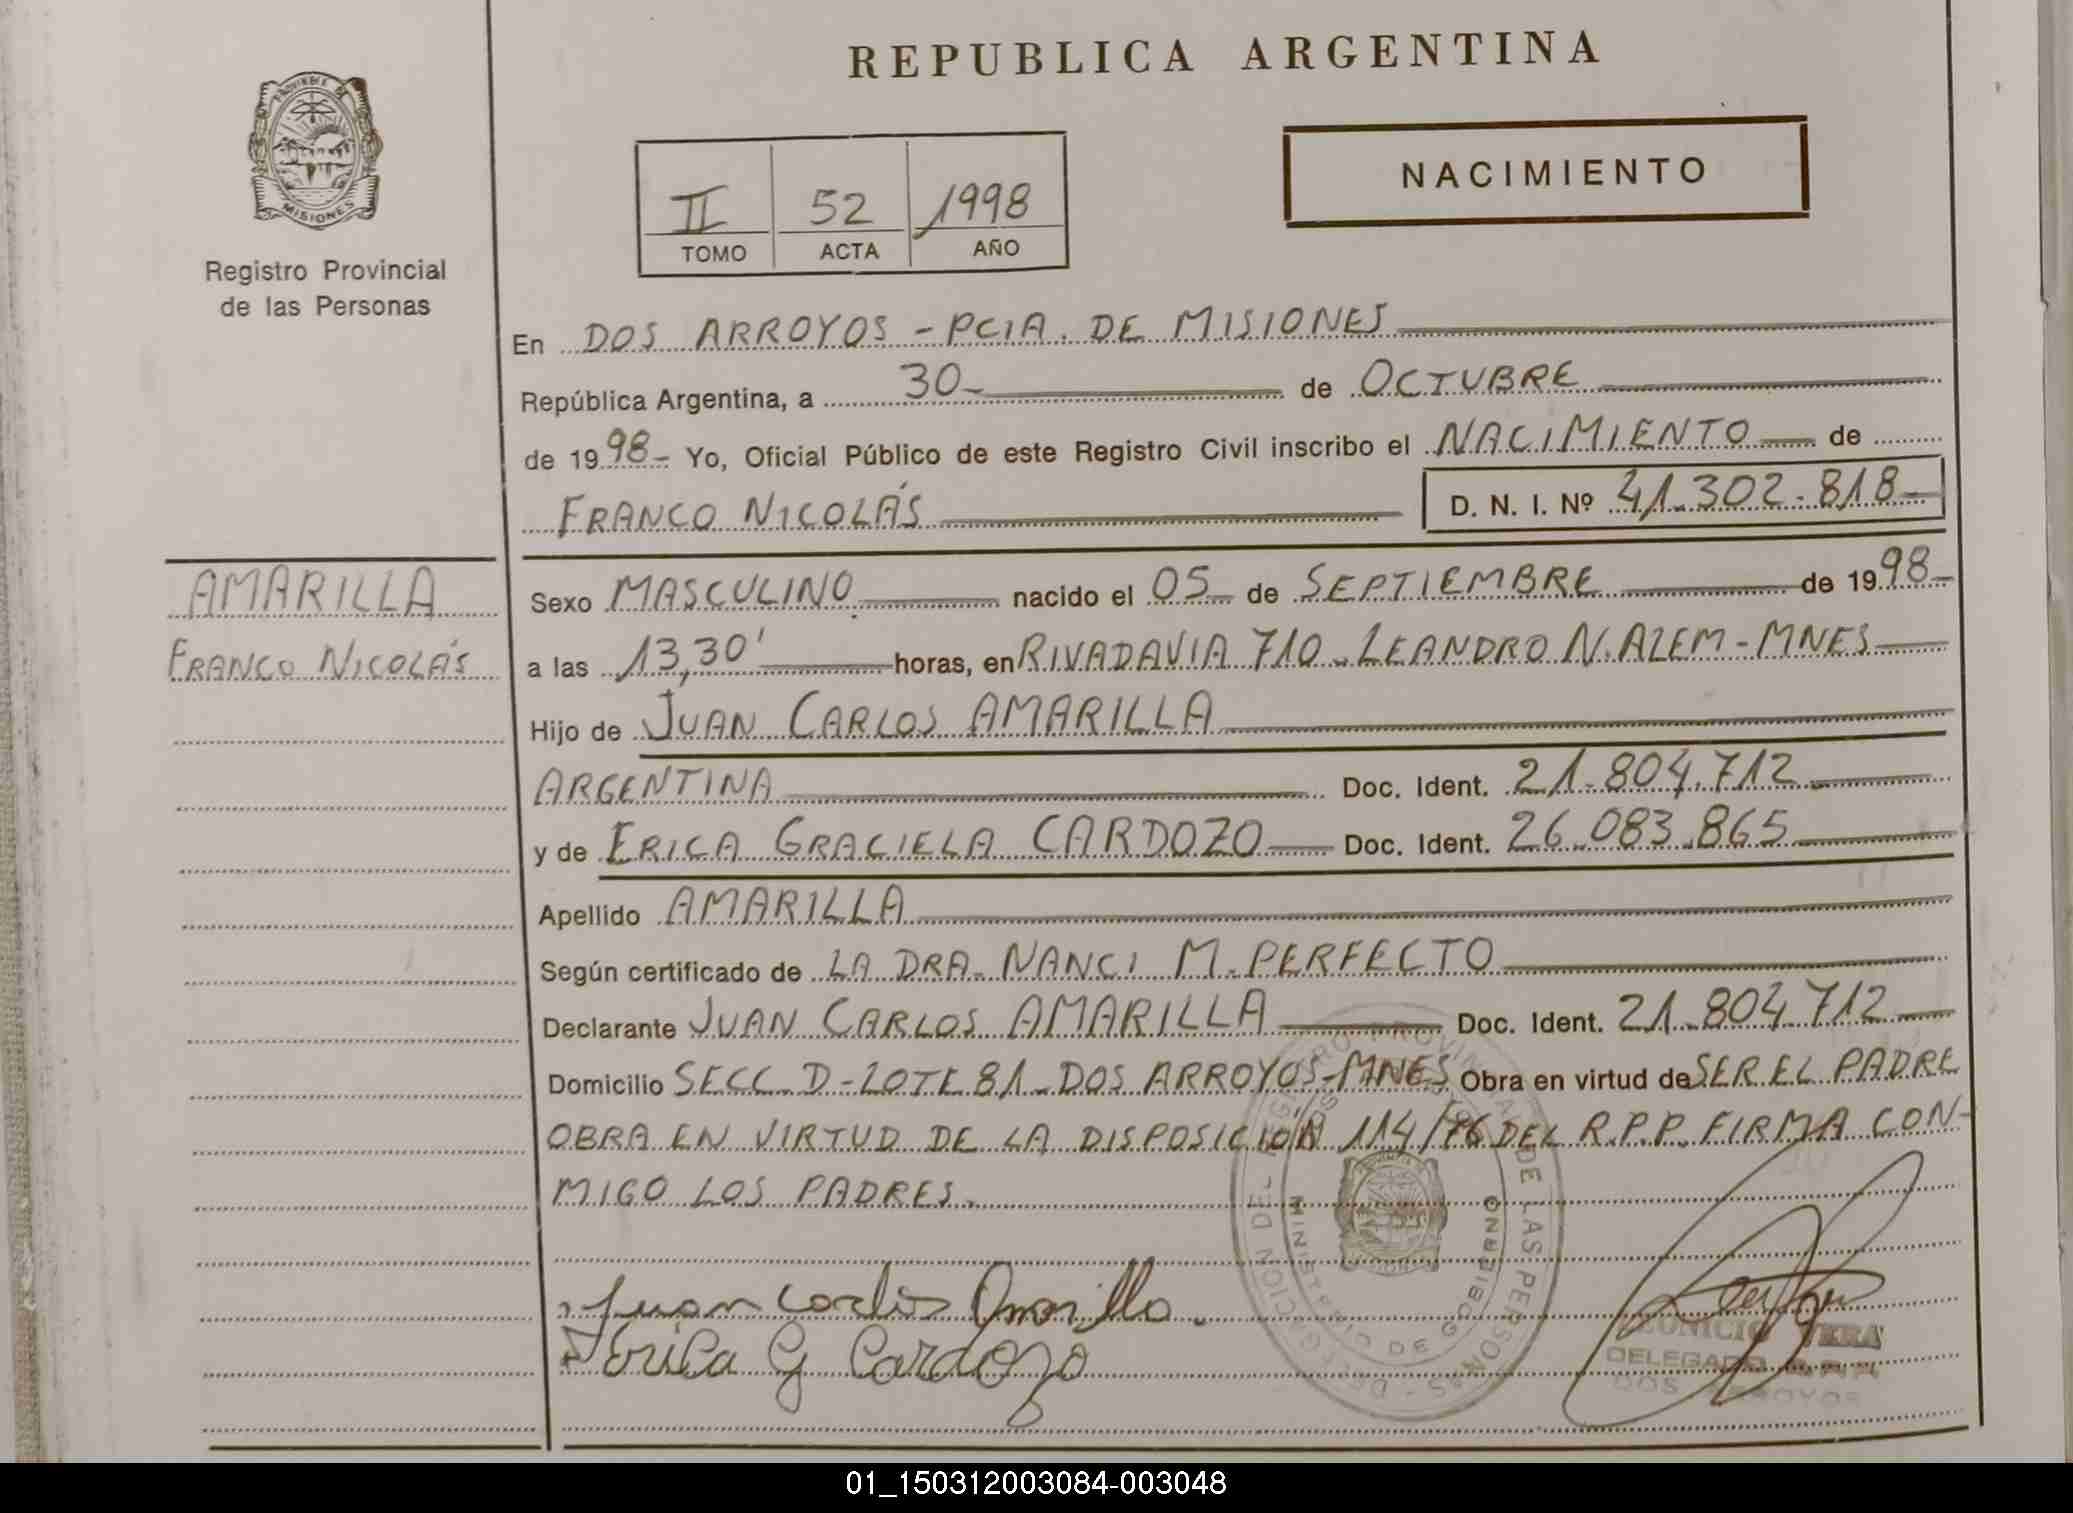 REPUBLICA ARGENTINA
PROVINCIA DE
MISIONES
Registro Provincial
de las Personas
NACIMIENTO
II 52 1998
TOMO ACTA AÑO
En DOS ARROYOS - PCIA. DE MISIONES
República Argentina, a 30- de OCTUBRE
de 1998- Yo, Oficial Público de este Registro Civil inscribo el NACIMIENTO de
FRANCO NICOLÁS D. N. I. Nº 41.302.818-
AMARILLA
FRANCO NICOLÁS
Sexo MASCULINO nacido el 05 de SEPTIEMBRE de 1998-
a las 13,30' horas, en RIVADAVIA 710 - LEANDRO N. ALEM - MNES
Hijo de JUAN CARLOS AMARILLA
ARGENTINA Doc. Ident. 21.804.712
y de ERICA GRACIELA CARDOZO Doc. Ident. 26.083.865
Apellido AMARILLA
Según certificado de LA DRA. NANCI M. PERFECTO
Declarante JUAN CARLOS AMARILLA Doc. Ident. 21.804.712
Domicilio SECC. D - LOTE 81 - DOS ARROYOS - MNES Obra en virtud de SER EL PADRE
OBRA EN VIRTUD DE LA DISPOSICIÓN 114/96 DEL R.P.P. FIRMA CON-
MIGO LOS PADRES.
Juan Carlos Amarilla.
Erica G Cardozo
DELEGACION DEL REGISTRO PROVINCIAL DE LAS PERSONAS
MINISTERIO DE GOBIERNO
VERA
DELEGADO R.P.P.
DOS ARROYOS
01_150312003084-003048